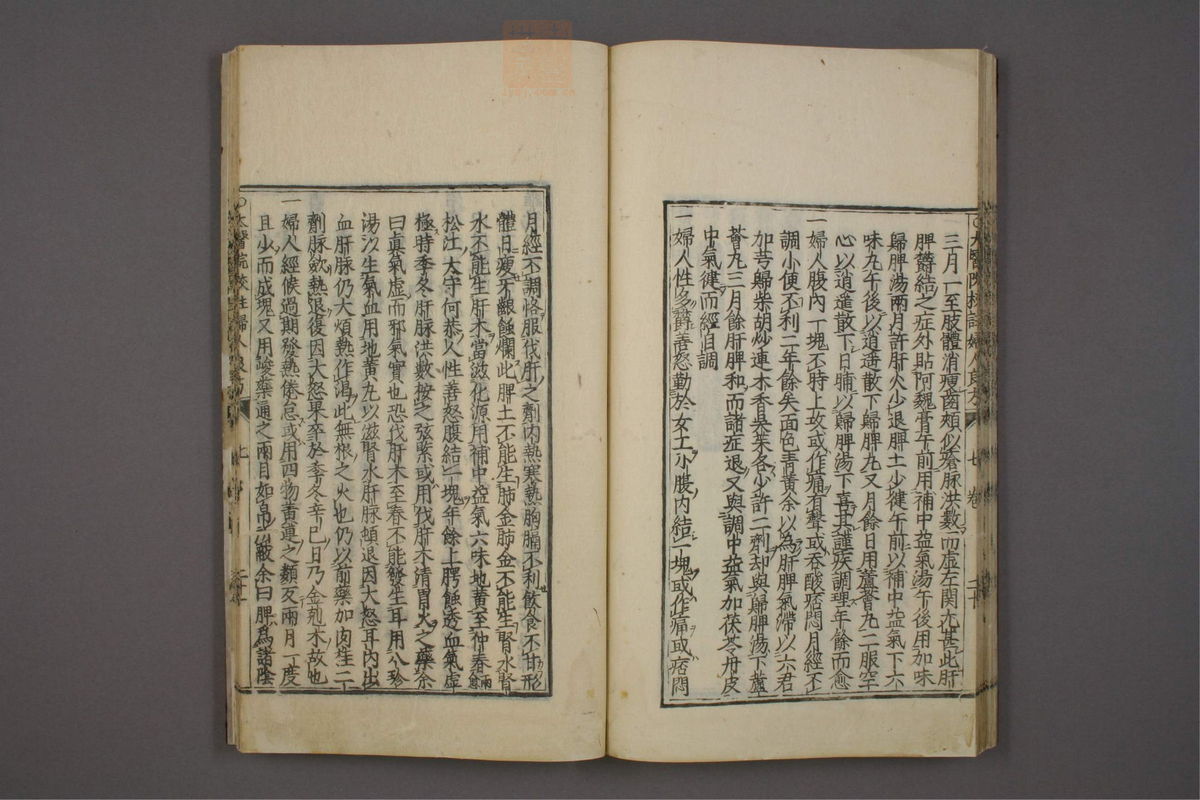 三月一至肢體消瘦齒頰似瘡脉洪數而虛左関尤甚此肝
脾欝結之症外貼阿魏膏午前用補中益氣湯午後用加味
歸脾湯兩月許肝火少退脾土少健午前以補中益氣下六
味丸午後以逍遥散下歸脾丸又月餘日用蘆薈丸二服空
心以逍遥散下日晡以歸脾湯下喜其謹疾調理年餘而愈
一婦人腹內一塊不時上攻或作痛有聲或吞酸痞悶月經不
調小便不利二年餘矣面色青黃余以為肝脾氣滯以六君
加芎歸柴胡炒連木香吳茱各少許二劑却與歸脾湯下蘆
薈丸三月餘肝脾和而諸症退又與調中益氣加茯苓丹皮
中氣健而經自調
一婦人性多欝善怒勤於女工小腹內結一塊或作痛或痞悶
月經不調恪服伐肝之劑內熱寒熱胸膈不利飲食不甘形
體日瘦牙齦蝕爛此脾土不能生肺金肺金不能生腎水腎
水不能生肝木當滋化源用補中益氣六味地黃至仲春而愈
松江大守何恭人性善怒腹結一塊年餘上腭蝕透血氣虛
極時季冬肝脉洪數按之弦緊或用伐肝木清胃火之藥余
曰眞氣虛而邪氣實也恐伐肝木至春不能發生耳用八珍
湯以生氣血用地黃丸以滋腎水肝脉頓退因大怒耳內出
血肝脉仍大煩熱作渴此無根之火也仍以前藥加肉桂二
劑脉歛熱退復因大怒果卒於季冬辛巳日乃金剋木故也
一婦人經候過期發熱倦怠或用四物黃連之類反兩月一度
且少而成塊又用峻藥通之兩目如帛所蔽余曰脾為諸陰
○太醫院校註婦人良方
七